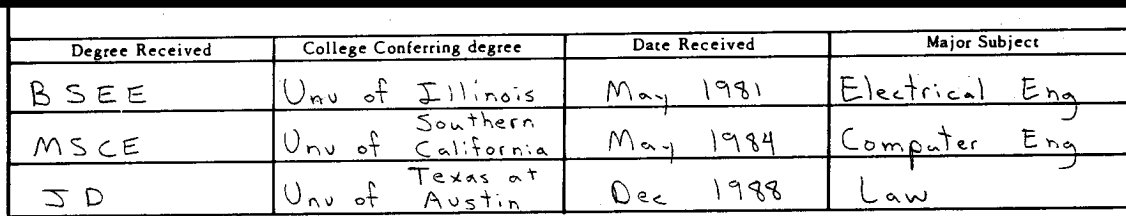 Degree Received College Conferring degree Date Received Major Subject
BSEE Unv of Illinois May 1981 Electrical Eng
MSCE Unv of Southern California May 1984 Computer Eng
JD Unv of Texas at Austin Dec 1988 Law